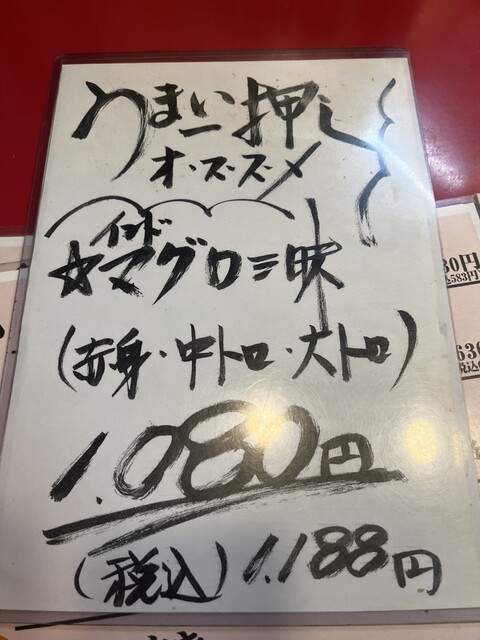 うまい一押し
オ・ス・ス・メ
インド
☆マグロ三昧
(赤身・中トロ・大トロ)
1.080円
(税込) 1.188円
80円
込583円
630
税込